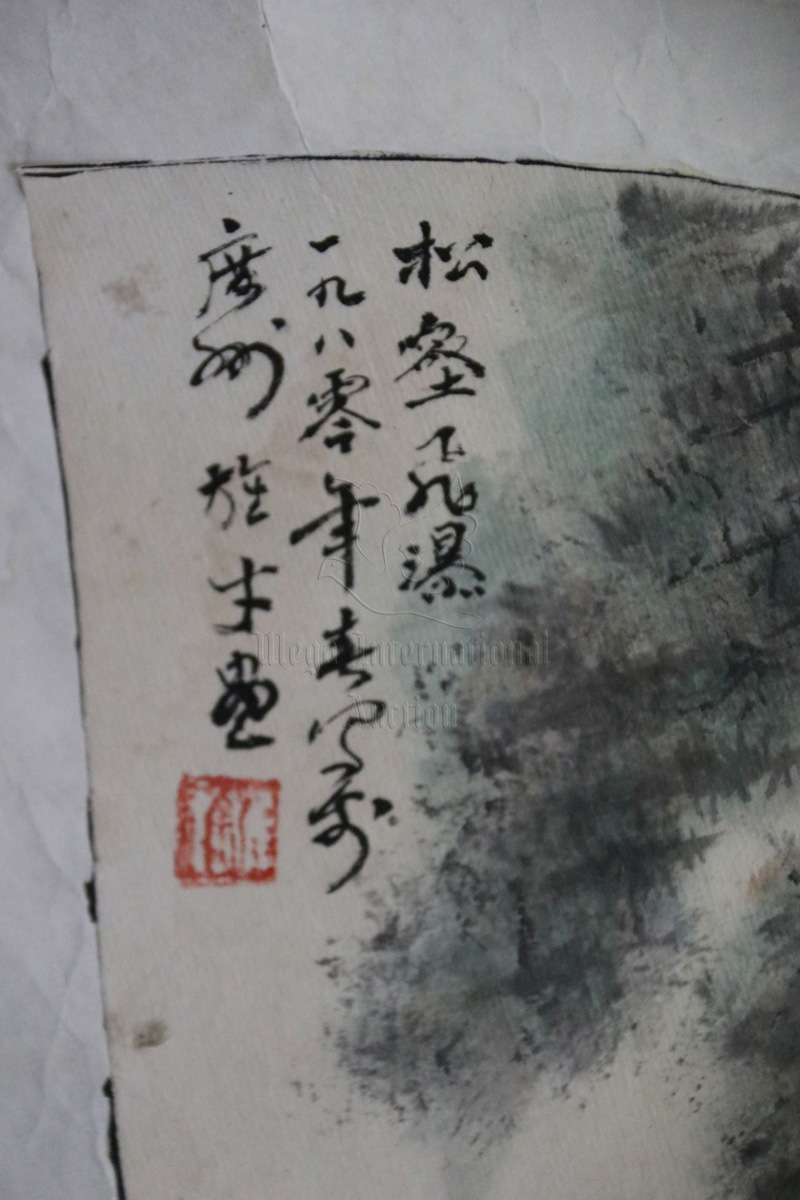 松壑飛瀑
一九八零年春寫於
廣州 旌才畫
Mega International
Auction